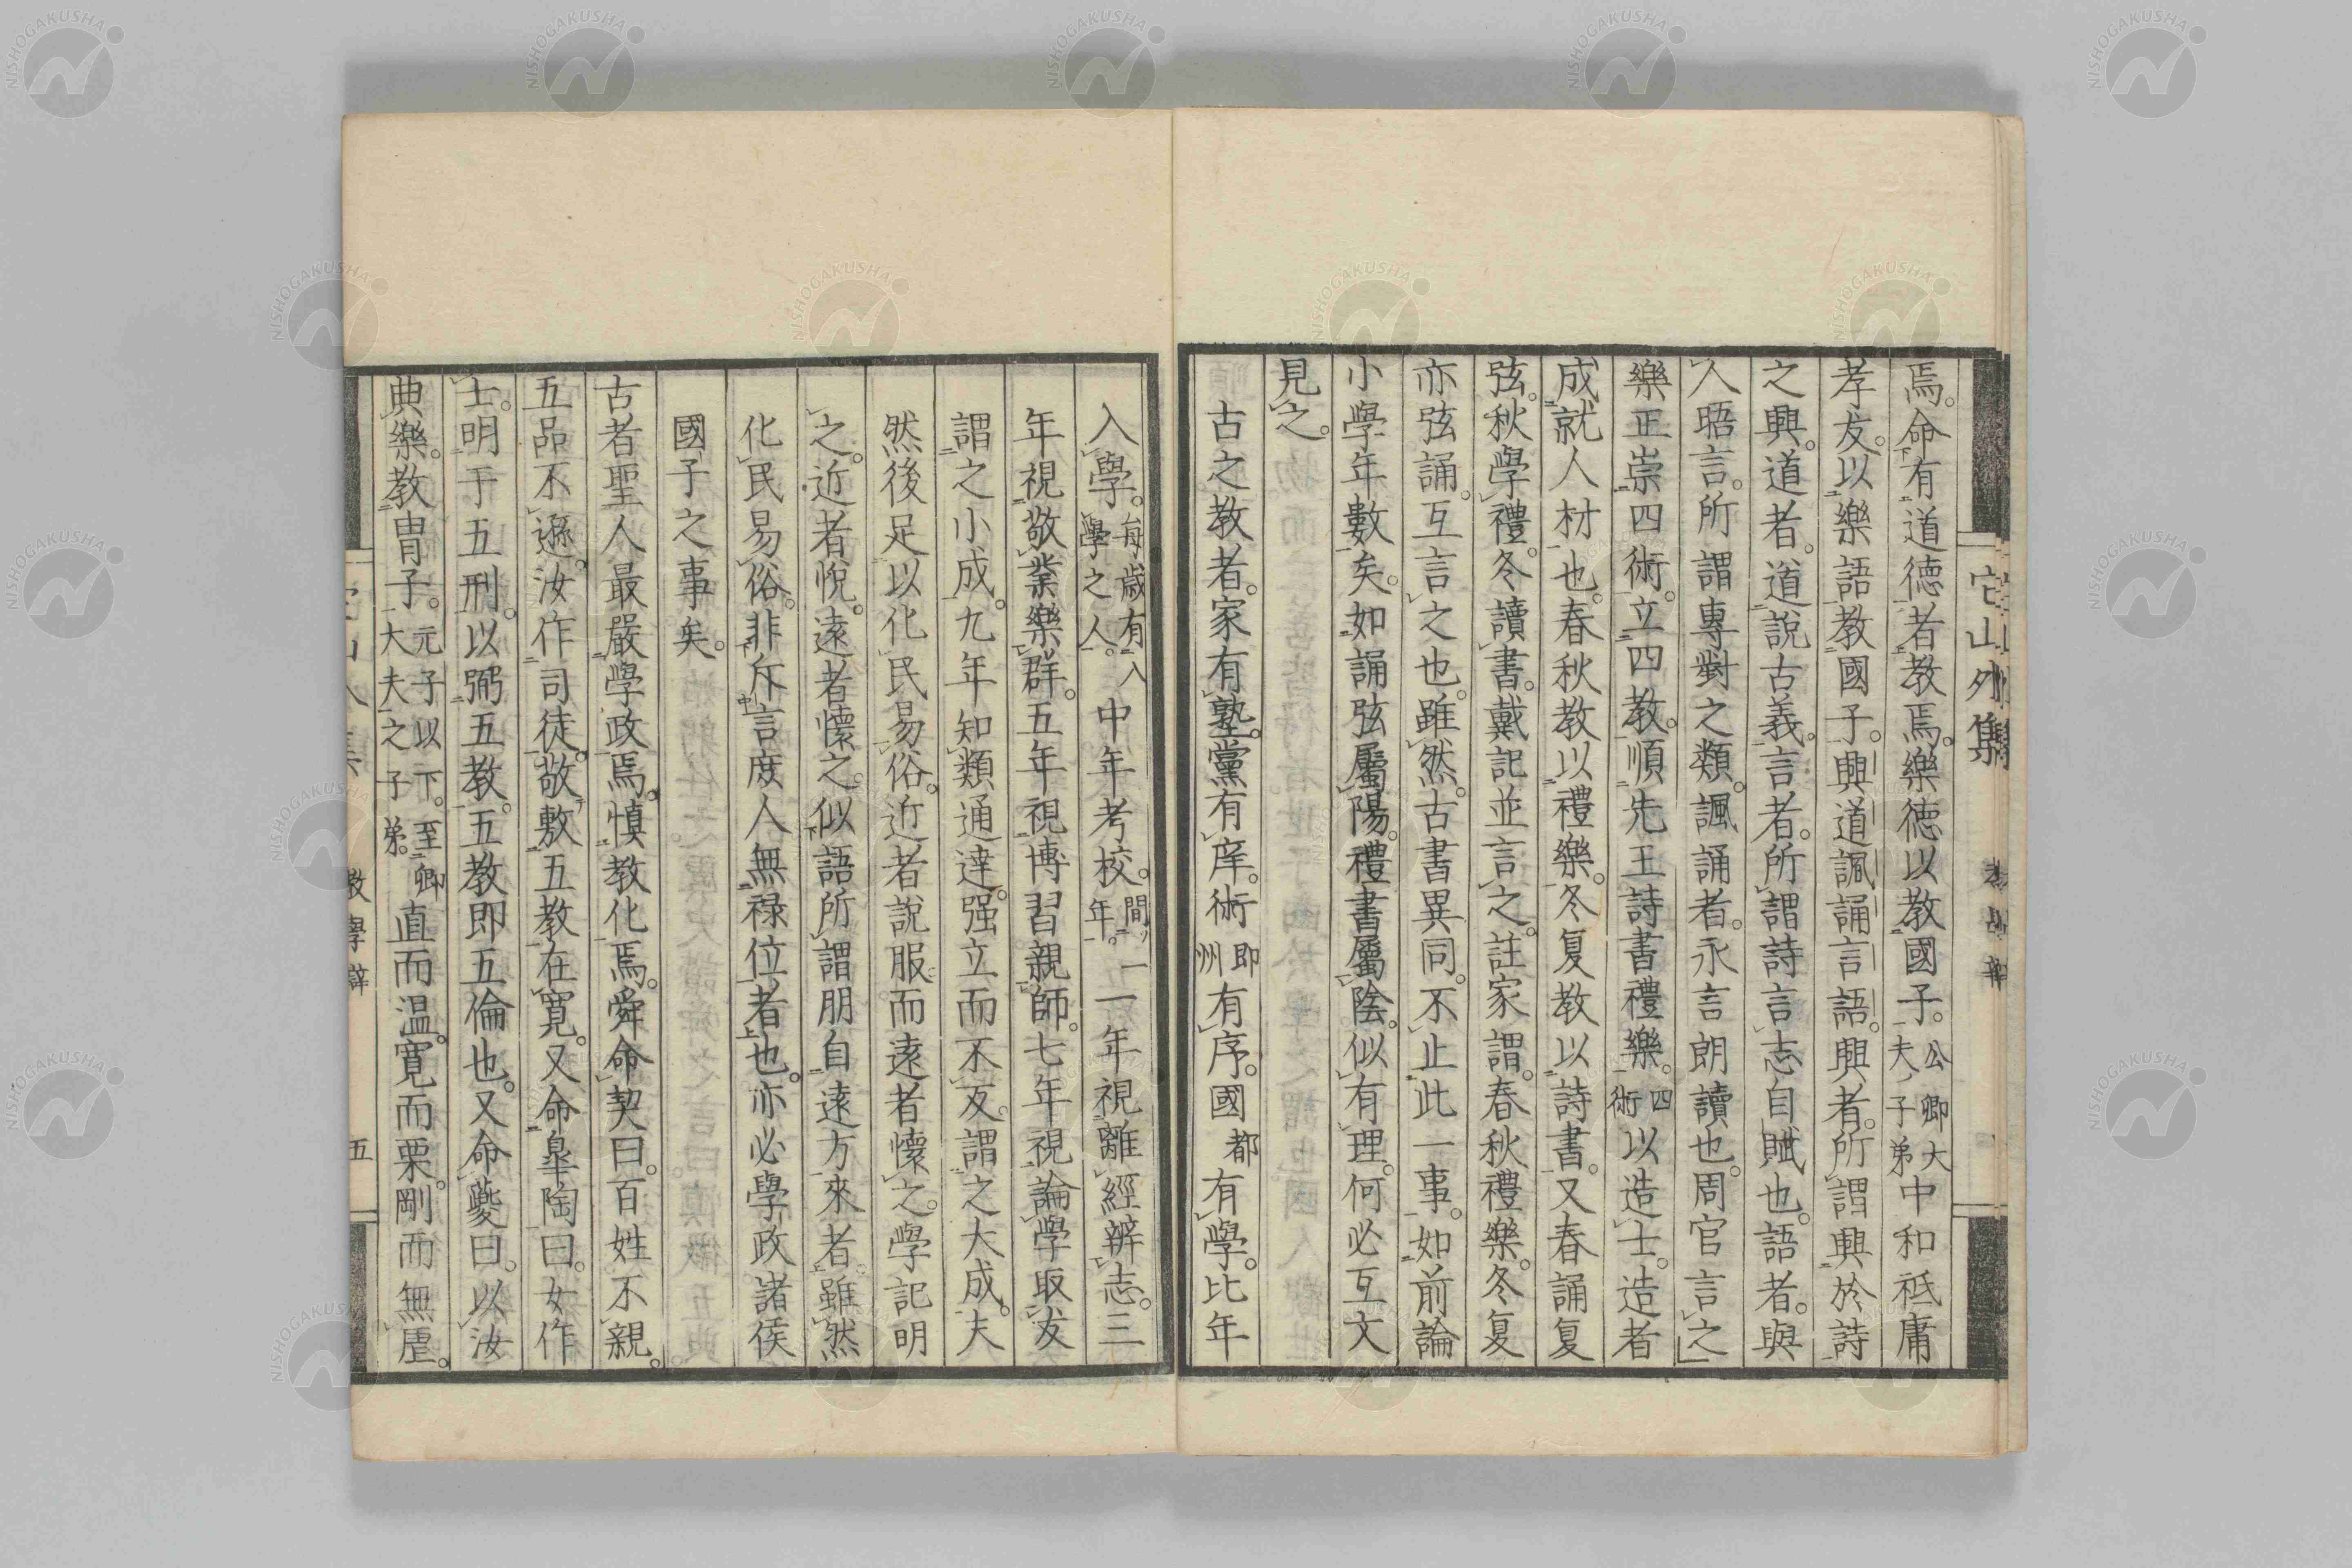 焉。命有道德者教焉。樂德以教國子。公卿大夫子弟中和祗庸
孝友。以樂語教國子。興道諷誦言語。興者。所謂興於詩
之興。道者。道說古義。言者。所謂詩言志自賦也。語者。與
人晤言。所謂專對之類。諷誦者。永言朗讀也。周官言之」
樂正崇四術。立四教。順先王詩書禮樂。四術以造士。造者
成就人材也。春秋教以禮樂。冬夏教以詩書。又春誦夏
弦。秋學禮。冬讀書。戴記並言之。註家謂。春秋禮樂。冬夏
亦弦誦。互言之也。雖然。古書異同。不止此一事。如前論
小學年數矣。如誦弦屬陽。禮書屬陰。似有理。何必互文
見之。
古之教者。家有塾。黨有庠。術即州有序。國都有學。比年
入學。每歲有入學之人。中年考校。間一年。一年視離經辨志。三
年視敬業樂群。五年視博習親師。七年視論學取友
謂之小成。九年知類通達。强立而不反。謂之大成。夫
然後足以化民易俗。近者說服而遠者懷之。學記明
之。近者悅。遠者懷之。似語所謂朋自遠方來者。雖然
化民易俗。非斥言庶人無祿位者也。亦必學政諸侯
國子之事矣。
古者聖人最嚴學政焉。慎教化焉。舜命契曰。百姓不親。
五品不遜。汝作司徒。敬敷五教。在寬。又命皐陶曰。女作
士。明于五刑。以弼五教。五教即五倫也。又命夔曰。以汝
典樂。教冑子。元子以下。至卿大夫之子弟。直而温。寬而栗。剛而無虐。
它山外集
教學辯
五
NISHOGAKUSHA